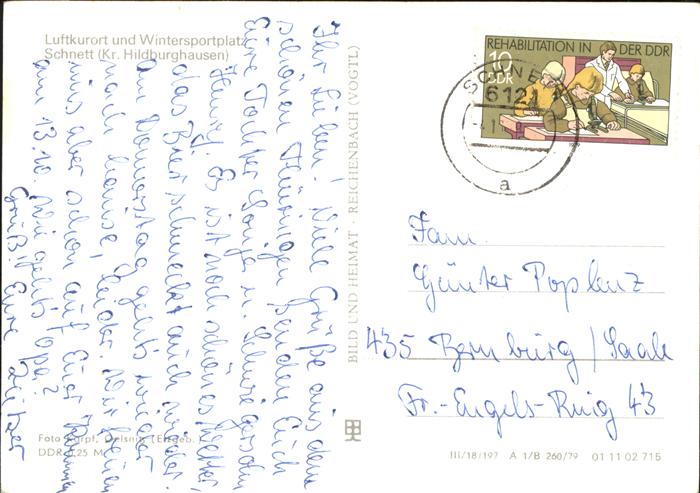 Luftkurort und Wintersportplatz
Schnett (Kr. Hildburghausen)
Ihr Lieben! Viele Grüße aus dem
schönen Thüringen senden Euch
Eure Tochter u. Schwiegersohn
Es ist noch schönes Wetter,
das Bier schmeckt auch wieder.
am Donnerstag geht's wieder
nach hause, leider. Wir freuen
uns aber schon auf Euer Kommen
am 13.10. Wie gehts Opa?
Grüß! Eure
Foto Karpf, Oelsnitz (Erzgeb.)
DDR 0,25 M
BILD UND HEIMAT · REICHENBACH (VOGTL)
REHABILITATION IN DER DDR
10
DDR
1979
SCHNETT
6121
a
Fam.
Günter Poplenz
435 Bernburg/Saale
Fr.-Engels-Ring 43
III/18/197 A 1/B 260/79 01 11 02 715